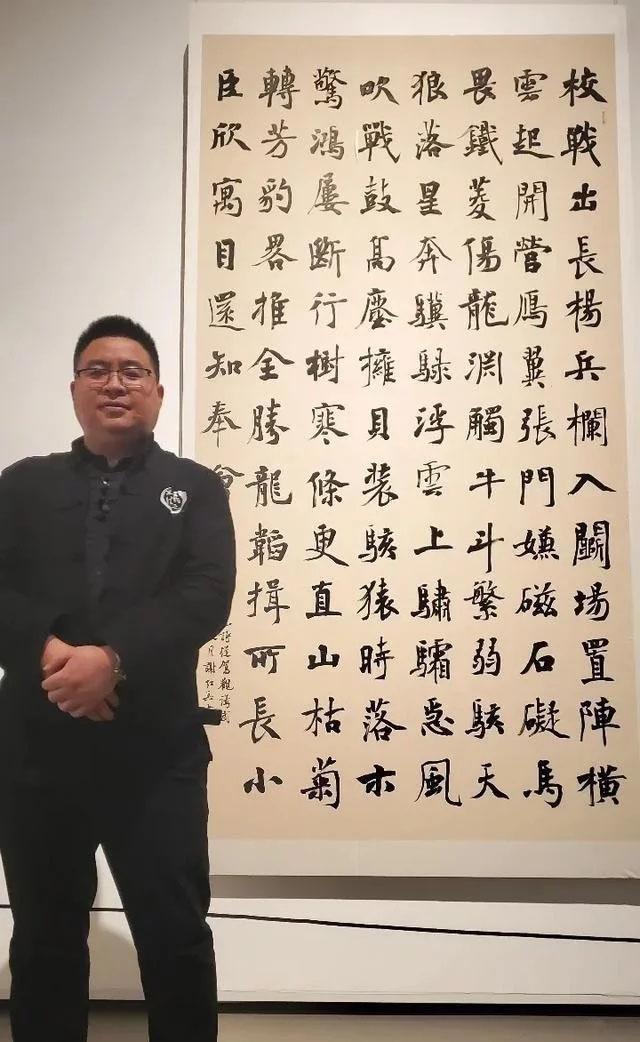 校戦出長楊兵欄入鬭場置陣橫
雲起開營鴈翼張門嫌磁石礙馬
畏鐵菱傷龍渊觸牛斗繁弱駭天
狼落星奔驥騄浮雲上驌驦急風
吹戰鼓高塵擁貝装駭猿時落木
驚鴻屢斷行樹寒條更直山枯菊
轉芳豹畧推全勝龍韜揖所長小
臣欣寓目還知奉會
詩從駕觀講武
月謝红